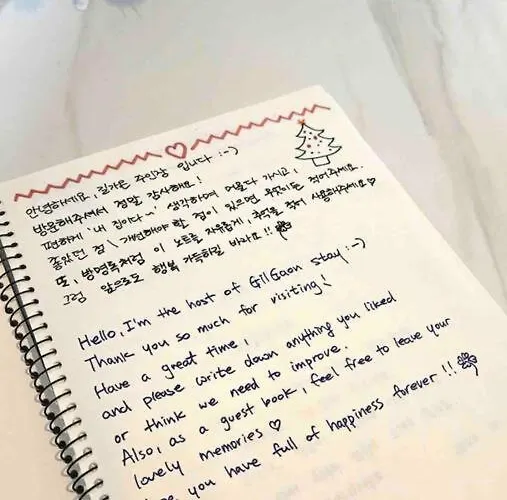 안녕하세요, 길가온 주인장 입니다 :-)
방문해주셔서 정말 감사해요!
편하게 '내 집이다~' 생각하며 머물다 가시고,
좋았던 점 \ 개선해야 할 점이 있으면 무엇이든 적어주세요.
또, 방명록처럼 이 노트를 자유롭게, 추억을 적어 사용해주세요♡
그럼 앞으로도 행복 가득하길 바라요!!
Hello, I'm the host of GilGaon stay :-)
Thank you so much for visiting!
Have a great time,
and please write down anything you liked
or think we need to improve.
Also, as a guest book, feel free to leave your
lovely memories ♡
you have full of happiness forever!!